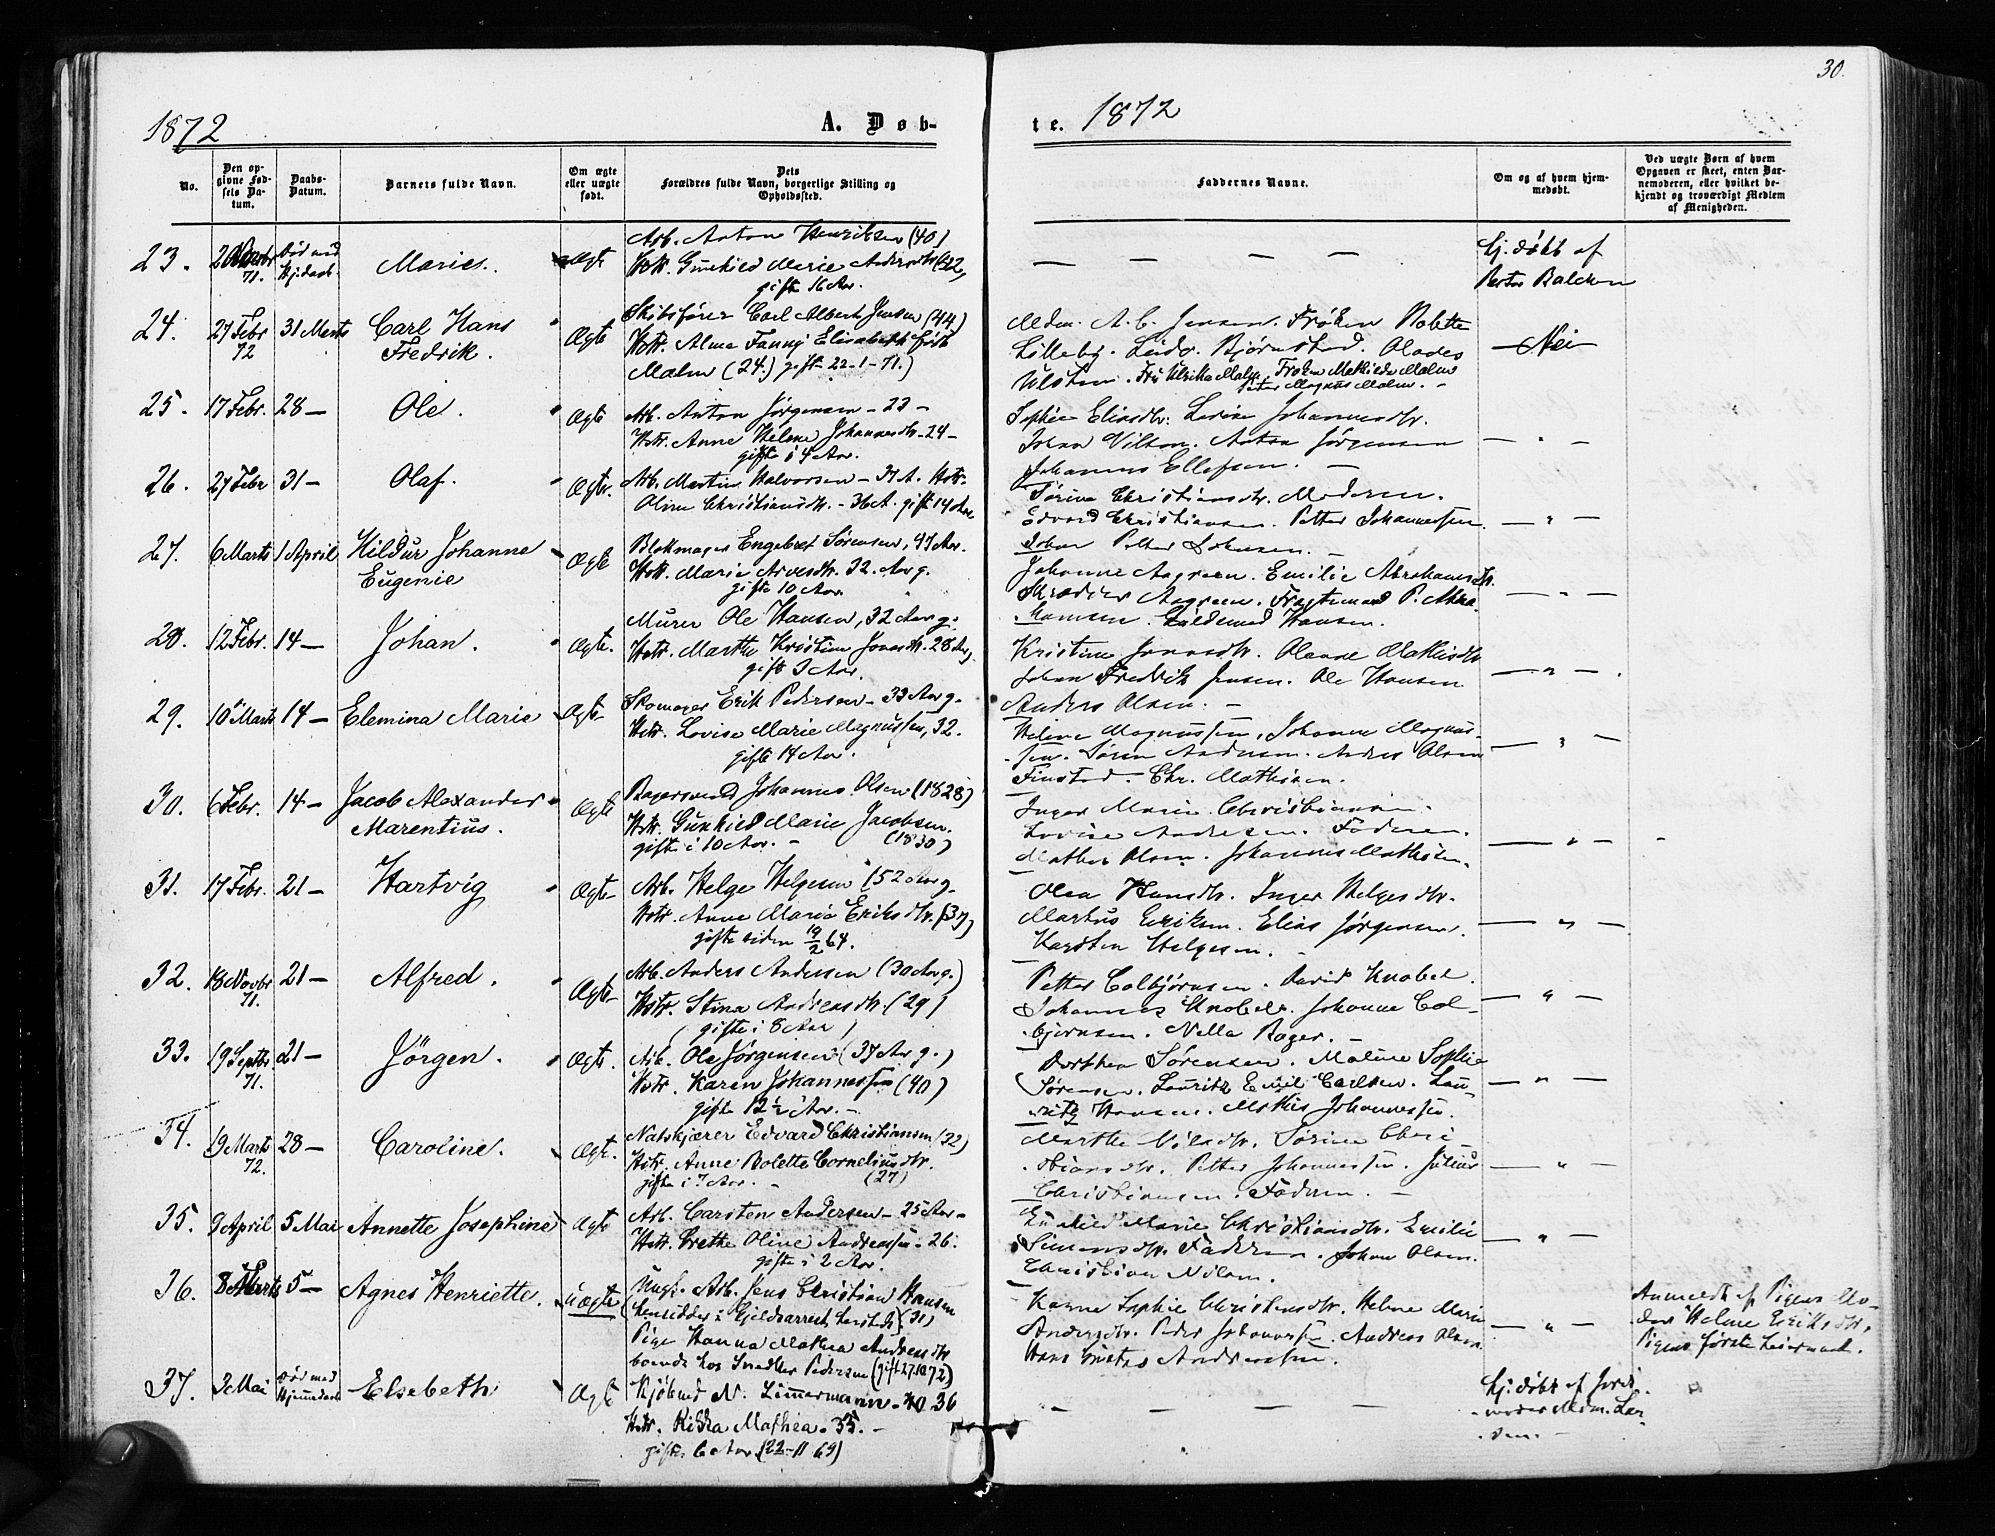 30.
1872
A. Døb-
te. 1872
No.
Den op-
givne Fød-
sels Da-
tum.
Daabs-
Datum.
Barnets fulde Navn.
Om ægte
eller uægte
født.
Dets
Forældres fulde Navn, borgerlige Stilling og
Opholdssted.
Faddernes Navne.
Om og af hvem hjem-
medøbt.
Ved uægte Børn af hvem
Opgaven er skeet, enten Bar-
nemoderen, eller hvilket be-
kjendt og troværdigt Medlem
af Menigheden.
23. 71. Død med Hj.daab. Marie. Ægte
Arb. Anton Henriksen (40)
Hstr. Gunhild Marie Andersdtr (42,
gifte 16 Aar.
— — — —
Hj. døbt af
24. 27 Febr 72 31 Marts Carl Hans
Fredrik. Ægte
Skibsfører Carl Albert Jensen (44)
Hstr. Alma Fanny Elisabeth født
Malm (24.) gift 22-1-71.)
Mdm. A. C. Jensen. Frøken Bolette
Lilleby. Bjørnstad.
Ulsten. Fru Ulrikke Malm, Frøken Mathilde Malm
Peter Magnus Malm. -
Nei
25. 17 Febr. 28 — Ole. Ægte
Arb. Anton Jørgensen - 23 -
Hstr. Anne Helene Johannesdtr. - 24 -
gifte i 4 Aar.
Sophie Eliasdtr. Lovise Johannesdtr.
Johan Nilsen. Anton Jørgensen
Johannes Ellefsen. —
— " —
26. 27 Febr 31 — Olaf. Ægte.
Arb. Martin Halvorsen - 37 A. Hstr.
Oline Christiansdtr. - 36 A. gift 14 Aar.
Sørine Christiansdtr. Moderen.
Edvard Christiansen. Petter Johannessen.
Johan Petter Johnsen. —
— " —
27. 6 Marts 1 April Hildur Johanne
Eugenie Ægte
Blokmager Engebret Sørensen, 47 Aar.
Hstr. Marie Arvesdtr. 32. Aar g.
gifte 10 Aar.
Johanne Aagreen. Emilie Abrahamsdtr.
Skrædder Aagreen. Fragtemand P. Abra-
hamsen. Guldsmed Hansen.
— " —
28. 12 Febr. 14 — Johan. Ægte.
Murer Ole Hansen, 32 Aar g.
Hstr. Marthe Kristine Jonasdtr. 28 Aar g.
gift 3 Aar.
Kristine Jonasdtr. Olande Mathisdtr
Johan Fredrik Jensen. Ole Hansen
Anders Olsen. —
— " —
29. 10 Marts 14 — Elemina Marie Ægte
Skomager Erik Pedersen - 33 Aar g.
Hstr. Lovise Marie Magnussen, 32.
gifte 14 Aar.
Helene Magnussen, Johanne Magnus-
sen. Søren Andersen. Andres Olsen
Finstad. Chr. Mathisen.
— " —
30. 6 Febr. 14 — Jacob Alexander
Marentius. Ægte
Bagersvend Johannes Olsen (1828)
Hstr. Gunhild Marie Jacobsen.
gifte i 10 Aar. - (1830)
Inger Marie Christiansen.
Lovise Andresen. Faderen.
Mathea Olsen. Johannes Mathisen.
— " —
31. 17 Febr. 21 — Hartvig Ægte
Arb. Helge Helgesen (52 Aar g.
Hstr. Anne Maria Eriksdtr. (37)
gifte siden 19/2 64.
Olea Hansdtr. Inger Helgesdtr.
Martus Eriksen. Elias Jørgensen.
Karsten Helgesen. -
— " —
32. 18 Novbr 71. 21 — Alfred. Ægte
Arb. Anders Andersen (30 Aar g.)
Hstr. Stina Andreasdtr. (29)
(gifte i 8 Aar)
Petter Colbjørnsen. David Knobel.
Johannes Knobel. Johanne Col-
bjørnsen. Nella Bager. —
— " —
33. 19 Septbr 71. 21 — Jörgen. Ægte.
Arb. Ole Jørgensen (37 Aar g.)
Hstr. Karen Johannessen (40)
gifte 12½ Aar. —
Dorthea Sørensen. Maline Sophie
Sørensen. Lauritz Emil Carlsen. Lau-
ritz Hansen. Mathis Johannessen.
— " —
34. 19 Marts 72. 28 — Caroline. Ægte.
Natskjærer Edvard Christiansen (32)
Hstr. Anne Bolette Corneliusdtr.
gifte i 7 Aar. - (27)
Marthe Nilsdtr. Sørine Chri-
stiansdtr. Petter Johannessen. Julius
Christiansen. Faderen. —
— " —
35. 9 April 5 Mai Annette Josephine Ægte
Arb. Carsten Andersen - 25 Aar -
Hstr. Grethe Oline Andreassen - 26.
gifte i 2 Aar.
Gunhild Marie Christiansdtr. Emilie
Simensdtr. Faderen. Johan Olsen.
Christian Nilsen.
— " —
36. 8 Marts 5 — Agnes Henriette. uægte
Ungk. Arb. Jens Christian Hansen
(hensidder i Gjeldsarrest hersteds) (31)
Pige Hanna Mathea Andreasdtr
boende hos Snedker Pedersen (gift 27.10 72)
Karne Sophie Christensdtr. Helene Marie
Andersdtr. Peder Johannessen. Andreas Olsen
Hans Gustav Andreassen.
— " —
Anmeldt af Pigens Mo-
der Helene Eriksdtr.
Pigens første Leiermaal.
37. 3 Mai Død med Hjemmedaab Elsebeth Ægte
Kjøbmd N. Zimmermann - 36
Hstr. Mathea. 35. -
gifte 6 Aar (22-11 69)
— — — —
Hj. døbt af Jord-
moder Mdm. Lar-
sen. —